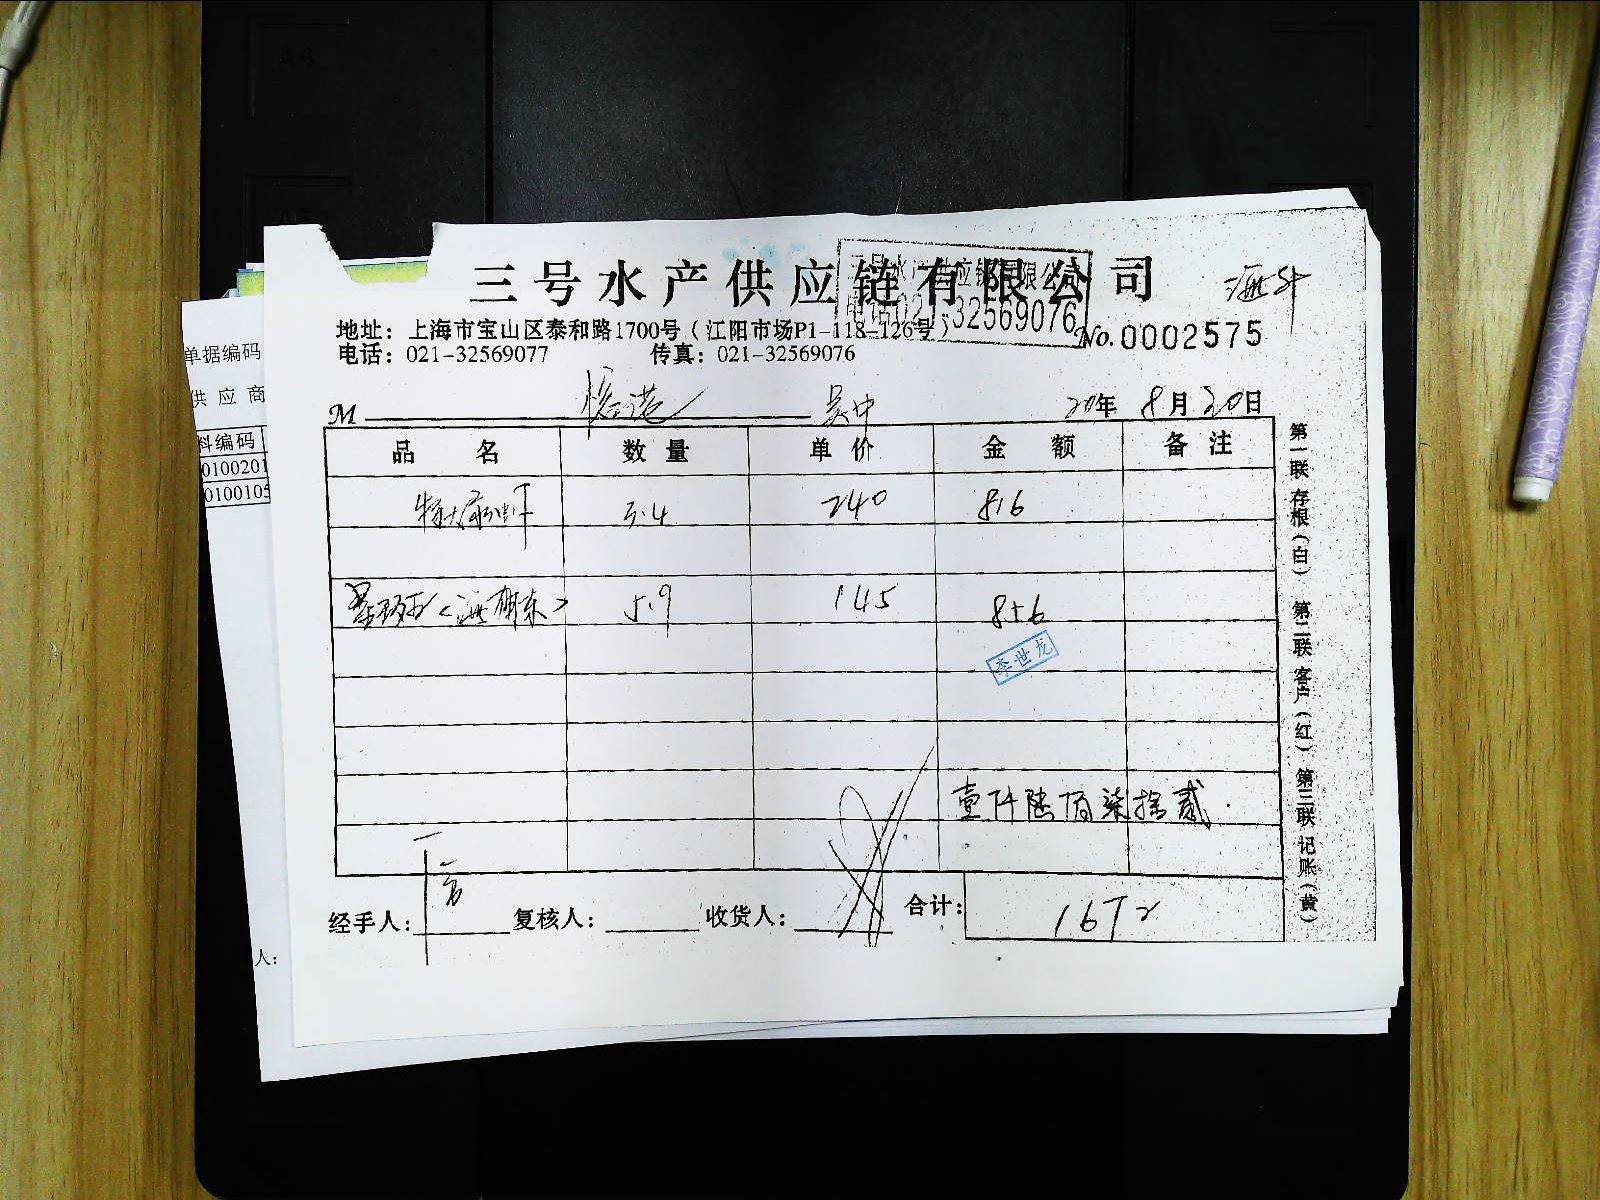 三号水产供应链有限公司
三号水产供应链有限公司
电话021-32569076
海鲜
地址：上海市宝山区泰和路1700号（江阳市场P1-118-126号）
No.0002575
电话：021-32569077 传真：021-32569076
M 吴中 20年 8月20日
品 名 数 量 单 价 金 额 备 注
3.4 240 816
5.9 145 856
李世龙
壹仟陆佰柒拾贰
经手人： 复核人： 收货人： 合计： 1672
第一联 存根（白） 第二联 客户（红） 第三联 记账（黄）
单据编码
供 应 商
料编码
0100201
0100105
人：